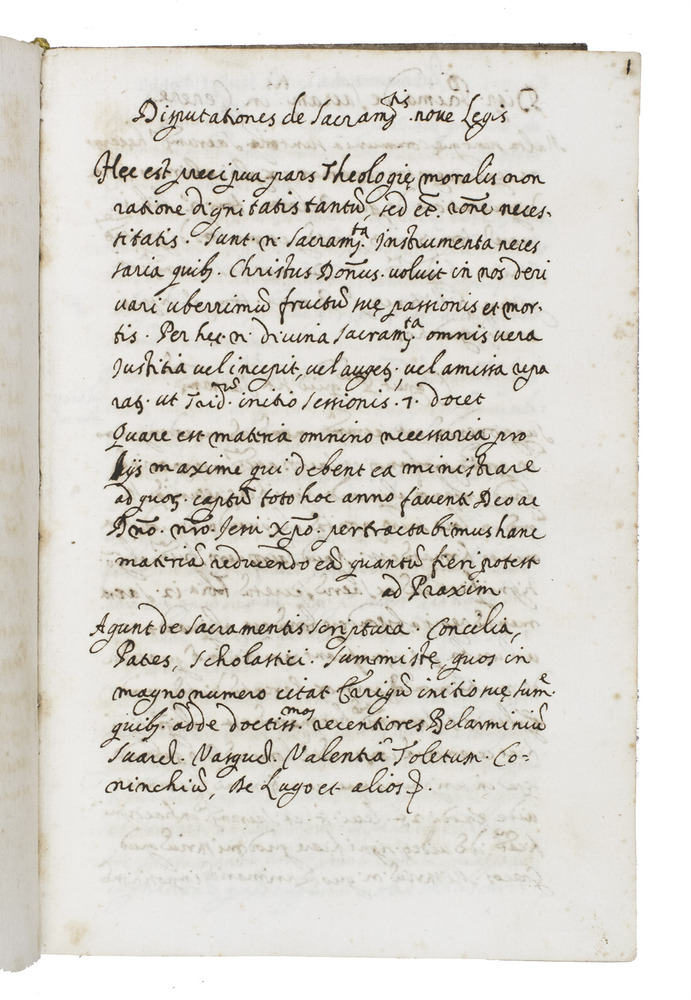 1
Disputationes de Sacram.tis nove Legis
Hęc est precipua pars Theologię moralis non
ratione dignitatis tantū, sed et rōne neces-
sitatis. Sunt .n. Sacram.ta Instrumenta neces
saria quib9. Christus Dōnus. voluit in nos deri
vari uberrimū fructū suę passionis et mor-
tis. Per hęc .n. divina Sacram.ta omnis vera
Justitia vel incepit, vel auget3, vel amissa repa
rat3. ut Trid.m initio sessionis .7. docet
Quare est materia omnino necessaria pro
Iys maxime qui debent ea ministrare
ad quor3. captū toto hoc anno faventē Deo ac
Dnō. nrō. Jesu Xpō. pertractabimus hanc
materiā reducendo eā quantū fieri potest
ad Praxim
Agunt de Sacramentis scriptura. Concilia,
Pates, Scholastici. Summistę, quos in
magno numero citat initio suę sumę.
quib9. adde doctiss.mos recentiores Belarminiū
Suared. Vasqud. Valentiā Toletum. Co-
ninchiū, De Lugo et alios